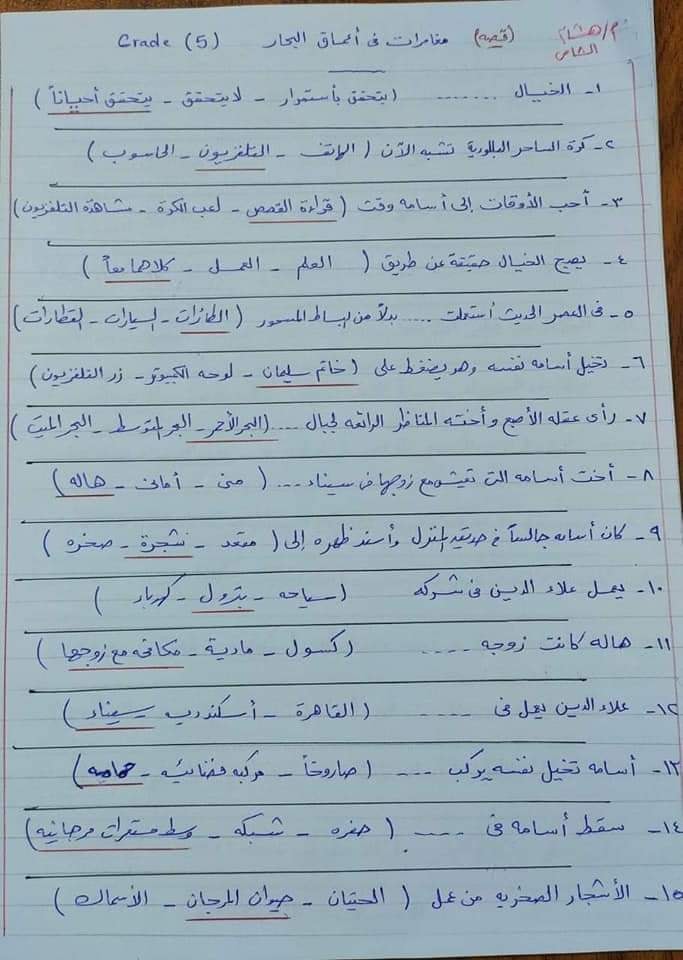 م/هشام الشامى
(قصه) مغامرات فى أعماق البحار Grade (5)
١- الخيال ........ (يتحقق بأستمرار - لا يتحقق - يتحقق أحياناً)
٢- كرة الساحر البللورية تشبه الآن (الهاتف - التلفزيون - الحاسوب)
٣- أحب الأوقات إلى أسامه وقت (قراءة القصص - لعب الكرة - مشاهدة التلفزيون)
٤- يصبح الخيال حقيقة عن طريق (العلم - العمل - كلاهما معاً)
٥- فى العصر الحديث أستعملت ..... بدلاً من البساط المسحور (الطائرات - السيارات - القطارات)
٦- تخيل أسامه نفسه وهو يضغط على (خاتم سليمان - لوحه الكبيوتر - زر التلفزيون)
٧- رأى عقله الأصبع وأخته المناظر الرائعه لجبال .... (البحر الأحمر - البحر المتوسط - البحر الميت)
٨- أخت أسامه التى تعيش مع زوجها فى سيناء .... (منى - أمانى - هاله)
٩- كان أسامه جالساً فى حديقه المنزل وأسند ظهره إلى (مقعد - شجرة - صخره)
١٠- يعمل علاء الدين فى شركه (سياحه - بترول - كهرباء)
١١- هاله كانت زوجه ..... (كسول - مادية - مكافحه مع زوجها)
١٢- علاء الدين يعمل فى ..... (القاهرة - أسكندريه - سيناء)
١٣- أسامه تخيل نفسه يركب .... (صاروخاً - مركبه فضائيه - حمامه)
١٤- سقط أسامه فى ..... (حفره - شبكه - وسط مستعمرات مرجانيه)
١٥- الأشجار الصخريه من عمل (الحيتان - حيوان المرجان - الأسماك)